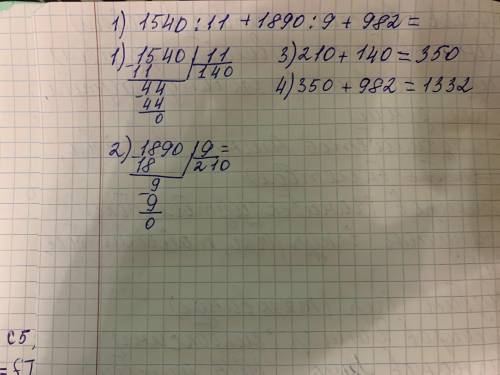 1) 1540 : 11 + 1890 : 9 + 982 =
1) 1540 | 11
11 | 140
44
44
0
3) 210 + 140 = 350
4) 350 + 982 = 1332
2) 1890 | 9 =
18 | 210
9
9
0
с5,